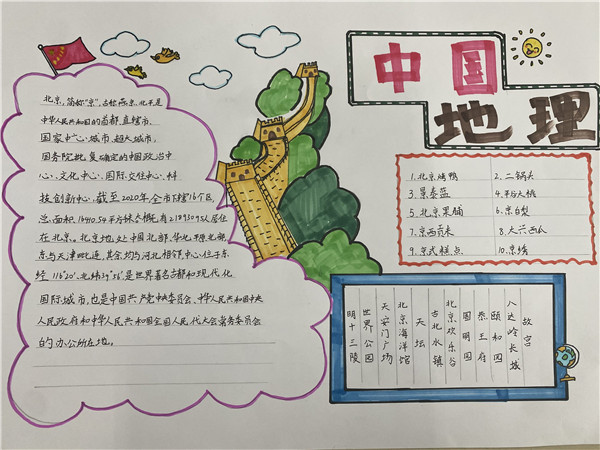 中国
地理
北京,简称"京",古称燕京、北平,是
中华人民共和国的首都,直辖市,
国家中心城市、超大城市,
国务院批复确定的中国政治中
心、文化中心、国际交往中心、科
技创新中心,截至2020年,全市下辖16个区,
总面积16410.54平方千米,概有21893095人居住
在北京。北京地处中国北部、华北平原北部,
东与天津毗连,其余均与河北相邻,中心位于东
经116°20′、北纬39°56′,是世界著名古都和现代化
国际城市,也是中国共产党中央委员会、中华人民共和国中央
人民政府和中华人民共和国全国人民代大会常务委员会
的办公所在地。
1.北京烤鸭 2.二锅头
3.景泰蓝 4.平谷大桃
5.北京果脯 6.京白梨
7.京西贡米 8.大兴西瓜
9.京式糕点 10.京绣
故宫
八达岭长城
颐和园
恭王府
圆明园
北京欢乐谷
古北水镇
天坛
北京海洋馆
天安门广场
世界公园
明十三陵